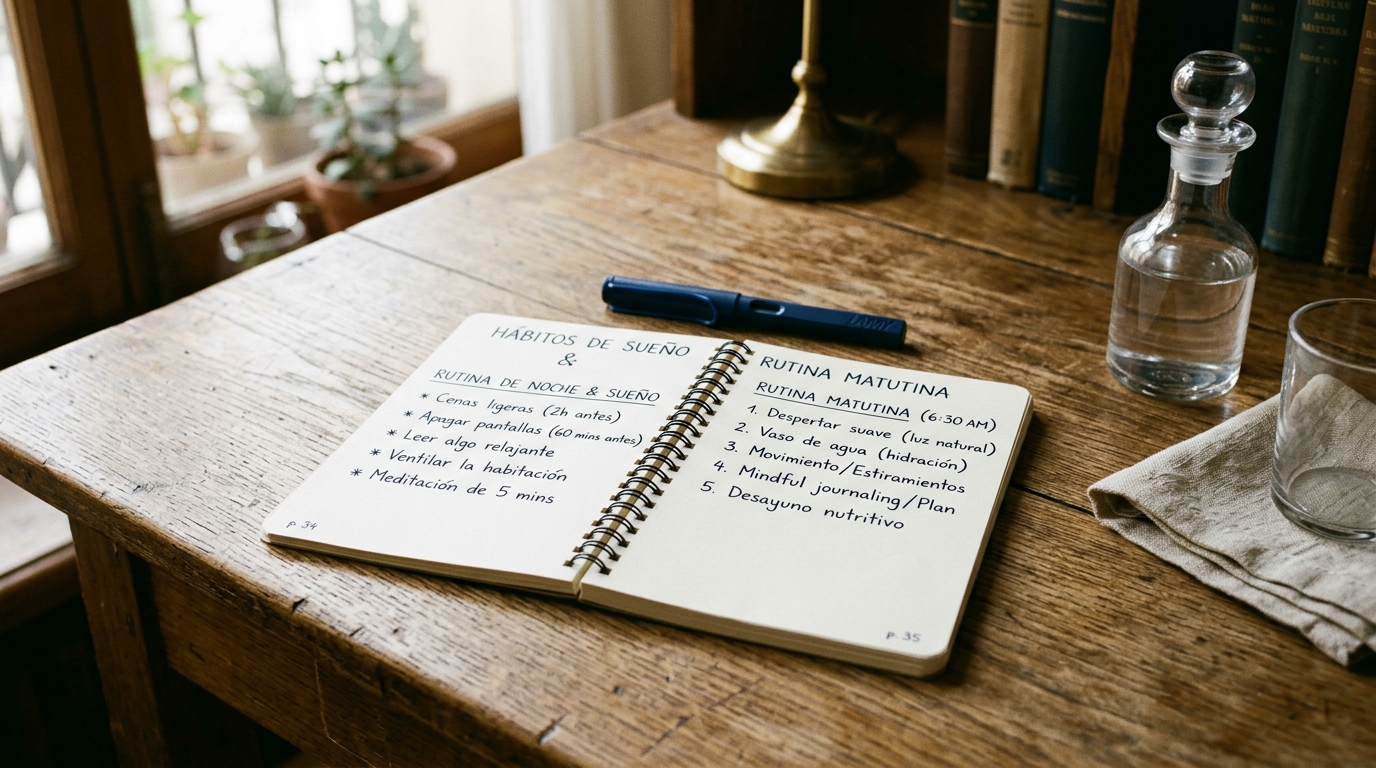 HÁBITOS DE SUEÑO
&
RUTINA DE NOCHE & SUEÑO
* Cenas ligeras (2h antes)
* Apagar pantallas (60 mins antes)
* Leer algo relajante
* Ventilar la habitación
* Meditación de 5 mins
p. 34
RUTINA MATUTINA
RUTINA MATUTINA (6:30 AM)
1. Despertar suave (luz natural)
2. Vaso de agua (hidración)
3. Movimiento/Estiramientos
4. Mindful journaling/Plan
5. Desayuno nutritivo
p. 35
LAMY